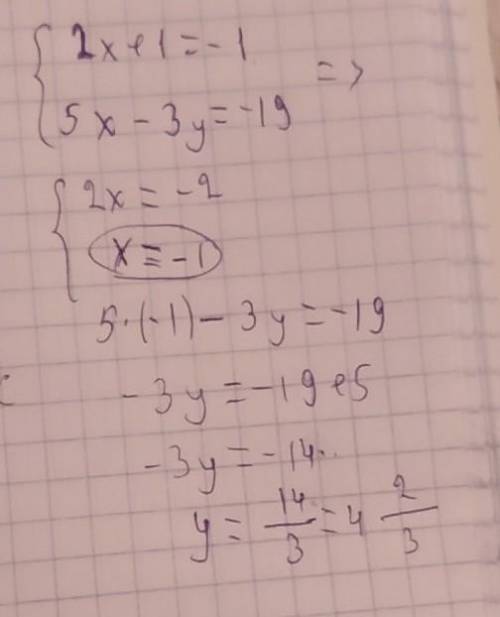 2x+1=-1
=>
5x-3y=-19
2x=-2
x=-1
5·(-1)-3y=-19
-3y=-19+5
-3y=-14
y=14/3=4 2/3